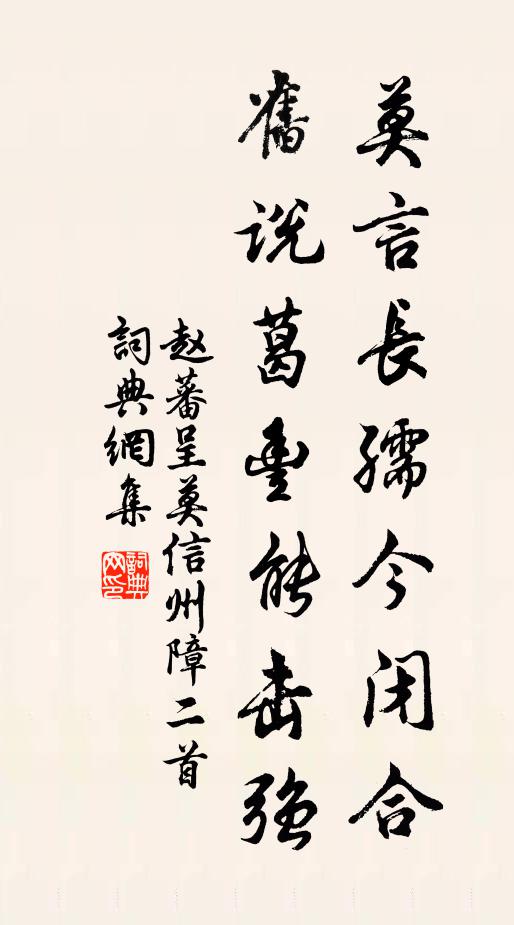 莫言長孺今闭合
舊说葛豊能击強
赵蕃呈莫信州障二首
詞典網集
詞典